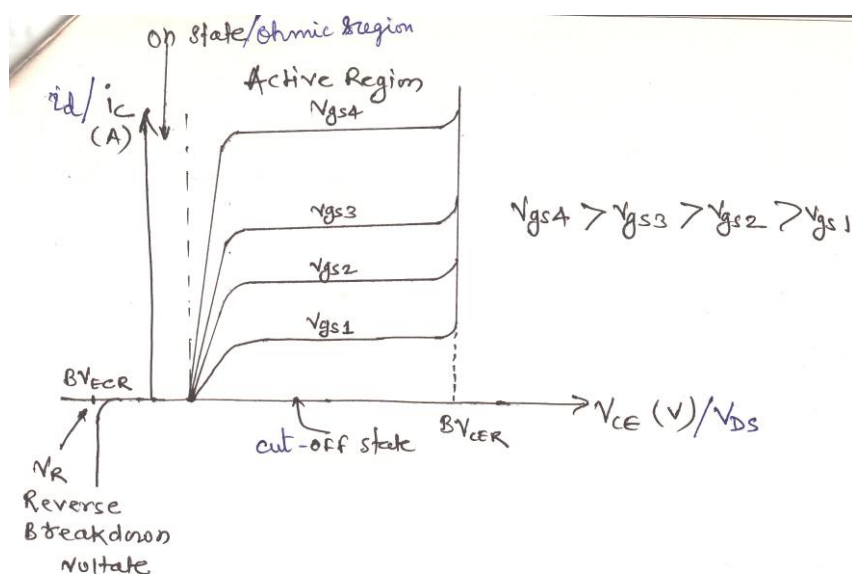 on state/ohmic region
Active Region
id/ic
(A)
Vgs4
Vgs3
Vgs2
Vgs1
Vgs4 > Vgs3 > Vgs2 > Vgs1
BVECR
BVCER
VCE (V)/VDS
cut-off state
VR
Reverse
Breakdown
Voltate